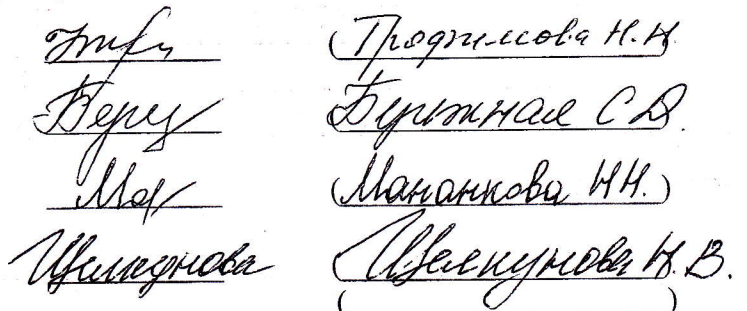 (Трофимова Н.Н.
Бережная С.Д.
(Мананкова Н.Н.)
Щелкунова (Щелкунова Н.В.
( )